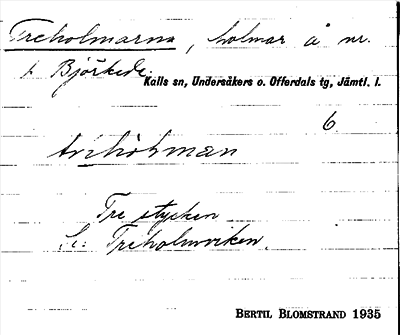 Treholmarna, holmar å nr.
t Björkede.
Kalls sn, Undersåkers o. Offerdals tg, Jämtl. l.
6
trihòḷman
Tre stycken
Se: Treholmviken.
BERTIL BLOMSTRAND 1935